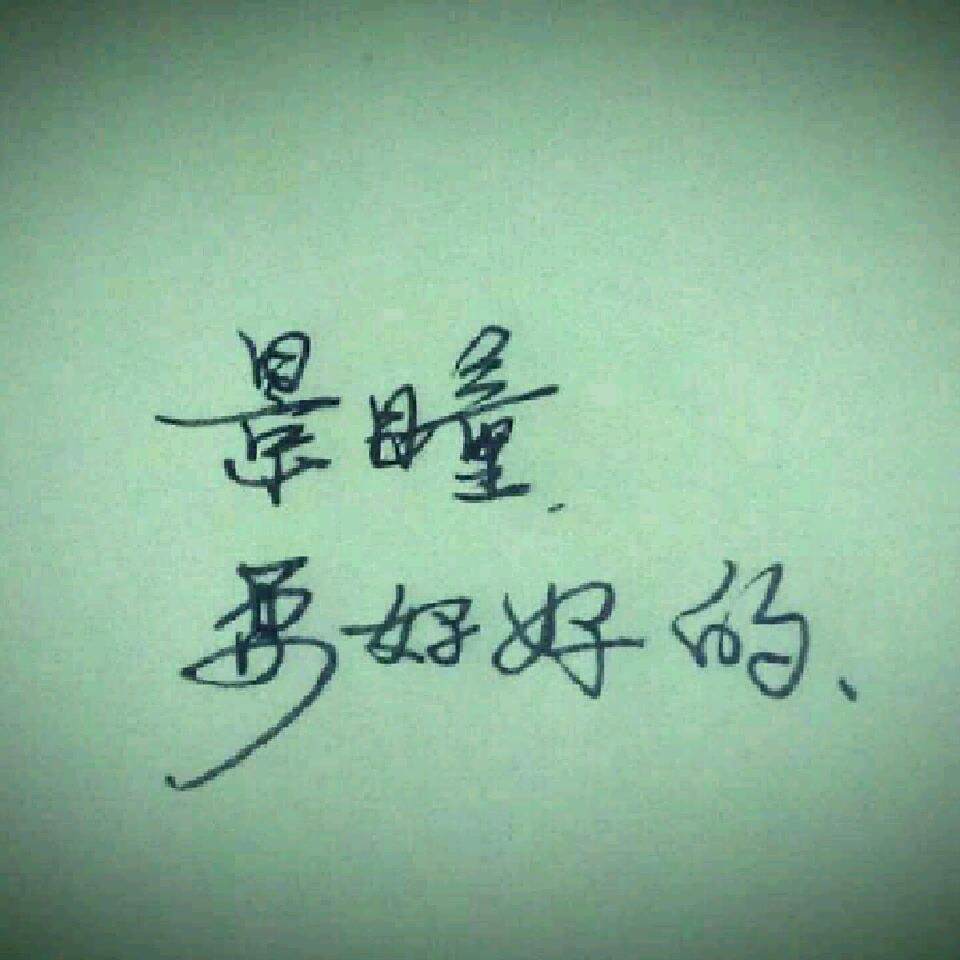 景瞳.
要好好的、